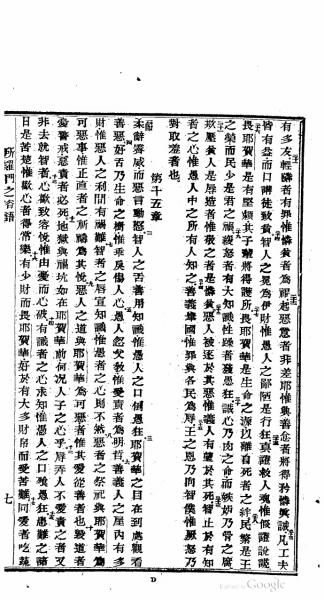 有多友輕隣者有罪惟憐貧者為福起惡意者非差耶惟與善意者將得矜憐與誠凡工夫
皆有益而口講徒致貧智人之冕為厥財惟愚人之鄙陋是行狂真證救人魂惟假證說謊
畏耶賀華是有堅賴其子輩將得護所畏耶賀華是生命之源以離自死者之網民繁是王
之榮而民少是君之禍緩怒者有大知識性躁者發愚狂誠心乃肉之命而嫉妬乃骨之腐
欺壓貧人是辱造者惟敬之者是憐貧惡人被逐於其惡惟義人有望於其死智止於有知
者之心惟愚人中之所有人知之善義舉國惟罪與各民為辱王之恩乃向智僕惟厥怒乃
對取羞者也
第十五章
柔辭霽威而惡言動怒智人之舌善用知識惟愚人之口倒愚狂耶賀華之目在到處觀看
善惡好舌乃生命之樹惟乖戾傷人心愚人忽父教惟愛責者為明哲善義人之屋內有多
財惟惡人之利間有禍難智者之唇宣知識惟愚者之心則不然惡者之祭祀與耶賀華為
可惡事惟正直者之祈禱為其悅惡人之道與耶賀華為可惡者惟其愛從善者也毀道者
憂戒惡責者必死地獄與禍坑如在耶賀華前何況人子之心乎辱弄人不愛責之者又
非去就智者心歡致容悅惟由憂而心破有識者之心求知惟愚人之口愚狂患難之諸
日是苦楚惟歡心者得常樂有少財而畏耶賀華好於有大多財帛而愛苦難同愛者吃蔬
所羅門之言語
七
D
Google